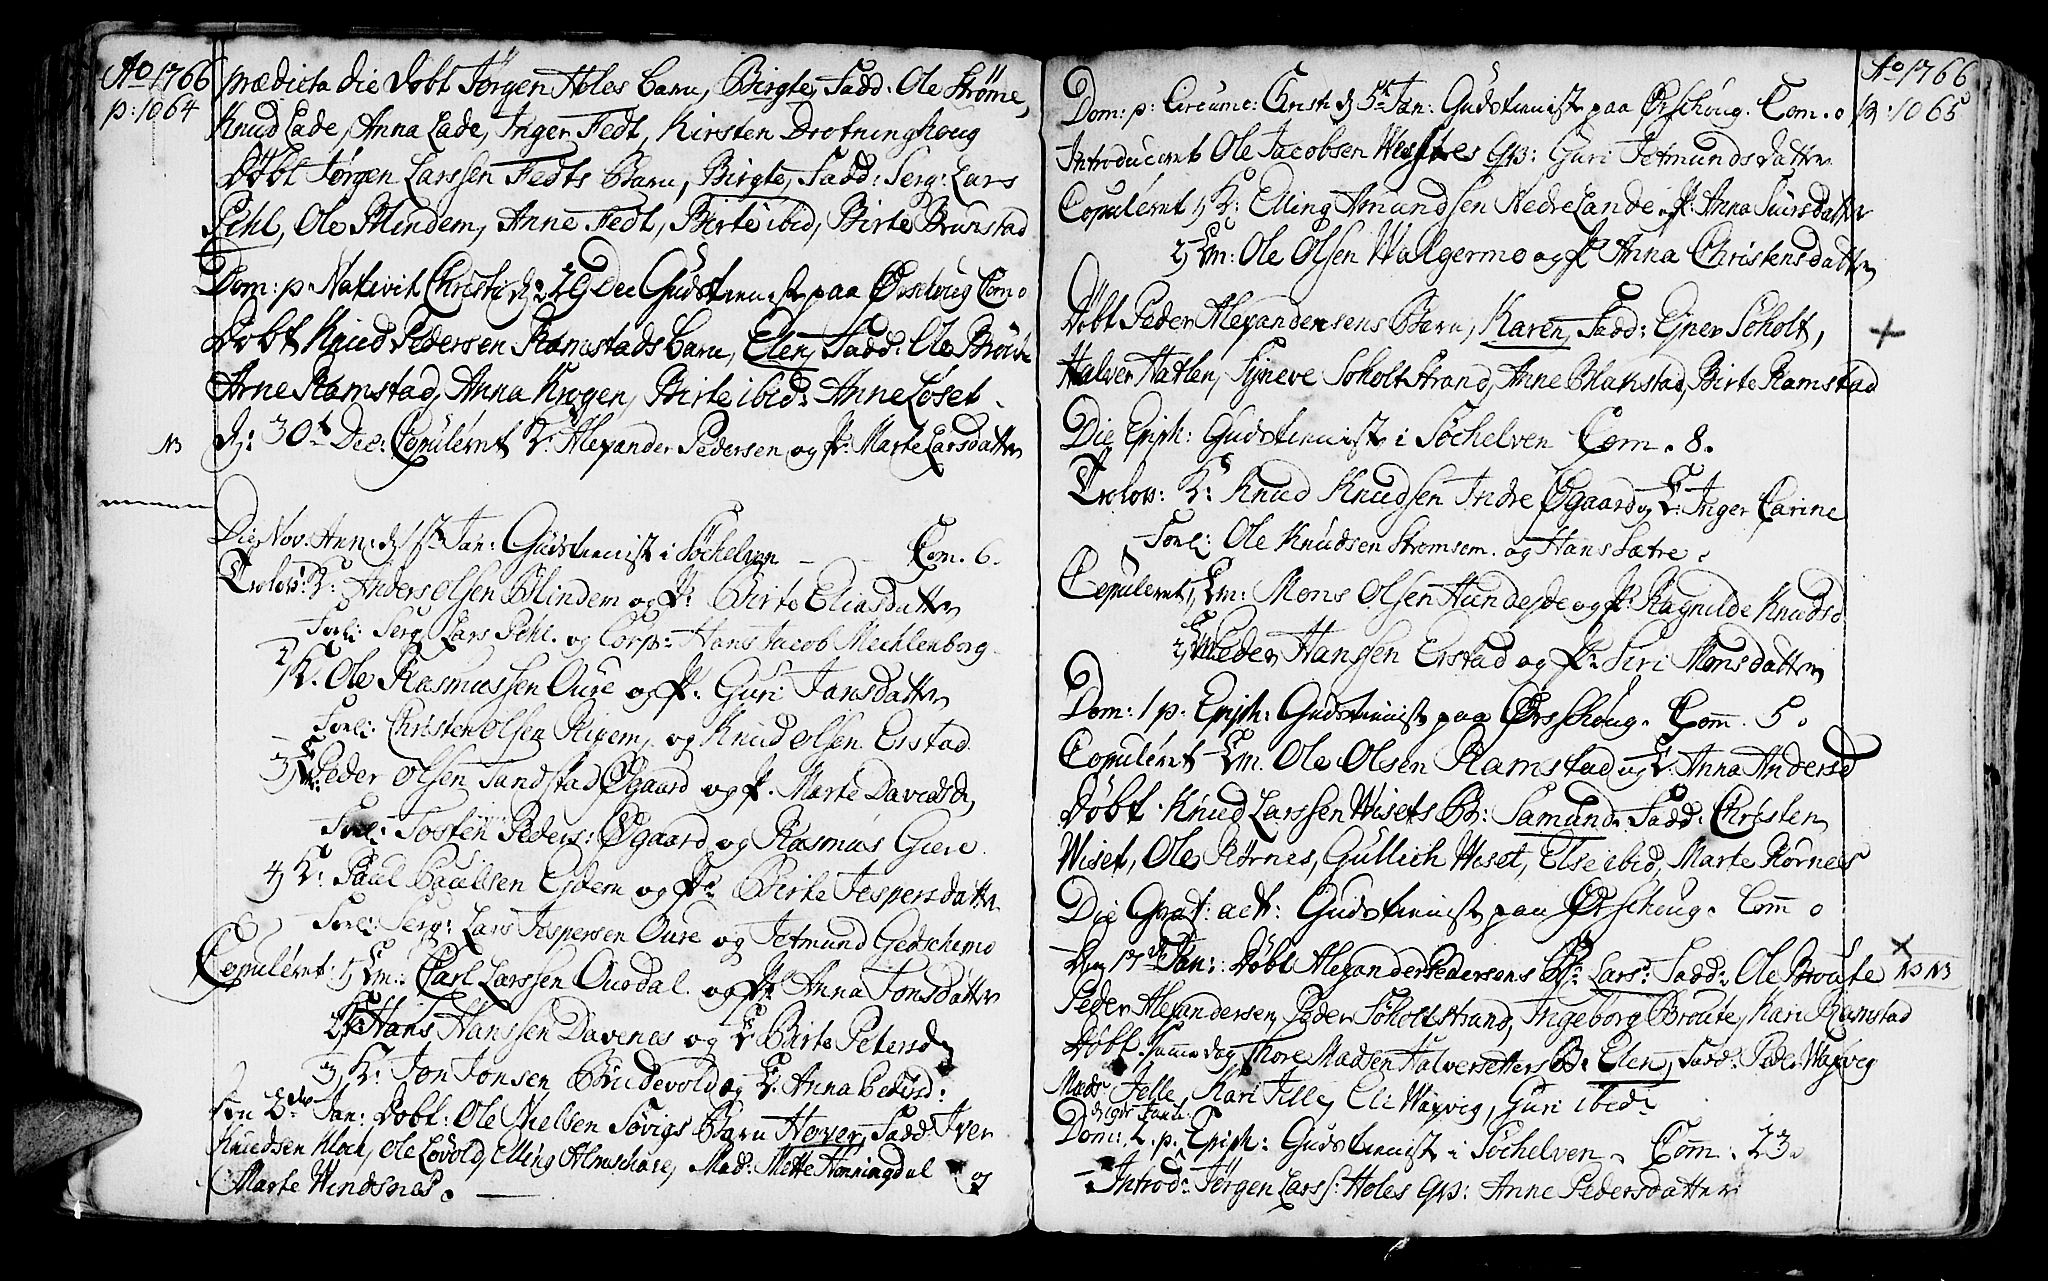 Ao 1766
p: 1064
prædicta die Døbt Jørgen Holes Barn, Birgte, Fadd. Ole Strøme,
Knud Lade, Anna Lade, Inger Fedt, Kirsten Drotninghoug
Døbt Jørgen Larssen Fedts Barn, Birgte, Fadd: Serg: Lars
Pehl, Ole Blindem, Anne Fedt, Birte ibid, Birte Brunstad
Dom: p. Nativit Christi d: 29 Dec Gudstienist paa Ørschoug Com 0
Døbt Knud Pedersen Ramstads Barn, Elen, Fadd: Ole Broute
Arne Ramstad, Anna Krogen, Birte ibid. Anne Løset.
NB
d: 30th Dec: Copulerert K: Alexander Pedersen og P: Marte Larsdatter
Die Nov: Ann: d 1st Jan: Gudstienist i Søchelven - Com. 6.
Trolov: K: Anders Olsen Blindem og P: Birte Eliasdatter
Forl: Serg Lars Pehl. og Corp: Hans Jacob Mechlenborg
2, K. Ole Rasmussen Oure og P: Guri Jansdatter
Forl: Christen Olsen Rigem, og Knud Olsen Erstad
3, Em: Peder Olsen Sandstad Øgaard og P. Marte Davidsd,
Forl: Tosten Peders: Øgaard og Rasmus Giere.
4, K: Paul Paulsen Eidem og P: Birte Jespersdatter
Forl: Serg: Lars Jespersen Oure og Jetmund Gedschemo
Copulernt: 1, Em: Carl Larssen Ousdal og P: Anna Jonsdatter
2, K: Hans Hanssen Davenes og E: Birte Petersd,
3, K: Jon Jonsen Brudevold og E. Anna Petersd:
den 2den Jan: Døbt: Ole Nielsen Søvigs Barn Hover, Fadd: Iver
Knudsen Kloch, Ole Løvold, Elling Almschaar, Mad: Mette Honningdal og
Marte Windsnes.
Ao 1766
p: 1065
Dom: p: Circumc: Christi d 5te Jan: Gudstienist paa Ørschoug. Com. 0
Introducernt Ole Jacobsen Westres Qv: Guri Jetmundsdatter
Copulernt 1, K: Elling Amundsen Nedre Lande. P: Anna Siursdatter
2, Em: Ole Olsen Walgermo og P. Anna Christensdatter
Døbt Peder Alexandersens Barn, Karen, Fadd: Ejner Søholt,
+
Halver Hatlen, Syneve Søholtstrand, Anne Blanstad, Birte Ramstad
Die Epiph: Gudstienist i Søchelven Com. 8.
Trolov: K: Knud Knudsen Indre Øgaard og E: Inger Carine
Forl: Ole Knudsen Stromsem. og Hans Sætre.
Copulernt 1, Em: Mons Olsen Hundeide og P: Ragnilde Knudsd
2, Em: Peder Hanssen Erstad og P: Siri Monsdatter
Dom: 1 p. Epiph: Gudstienist paa Ørschoug. Com. 5.
Copulernt Em. Ole Olsen Ramstad og E. Anna Andersd
Døbt. Knud Larssen Wisets B: Samund. Fadd: Christen
Wiset, Ole Rørnes, Gullich Wiset, Else ibid, Marte Rørnes
Die Grat: act: Gudstienist paa Ørschoug. Com 0
Den 17de Jan: Døbt Alexander Pedersens B: Lars: Fadd: Ole Broute
x
NB NB
Peder Alexandersen, Peder Søholtstrand, Ingeborg Broute, Kari Ramstad
Døbt Samme dag Thore Madsen Halversetters B: Elen, Fadd: Peder Waxvig
Mads Jelle, Kari Jelle, Eli Waxvig, Guri ibid.
d: 19de Janu:
Dom: 2. p. Epiph: Gudstienist i Søchelven. Com. 23.
Introd: Jørgen Larss: Holes Qv: Anne Pedersdatter